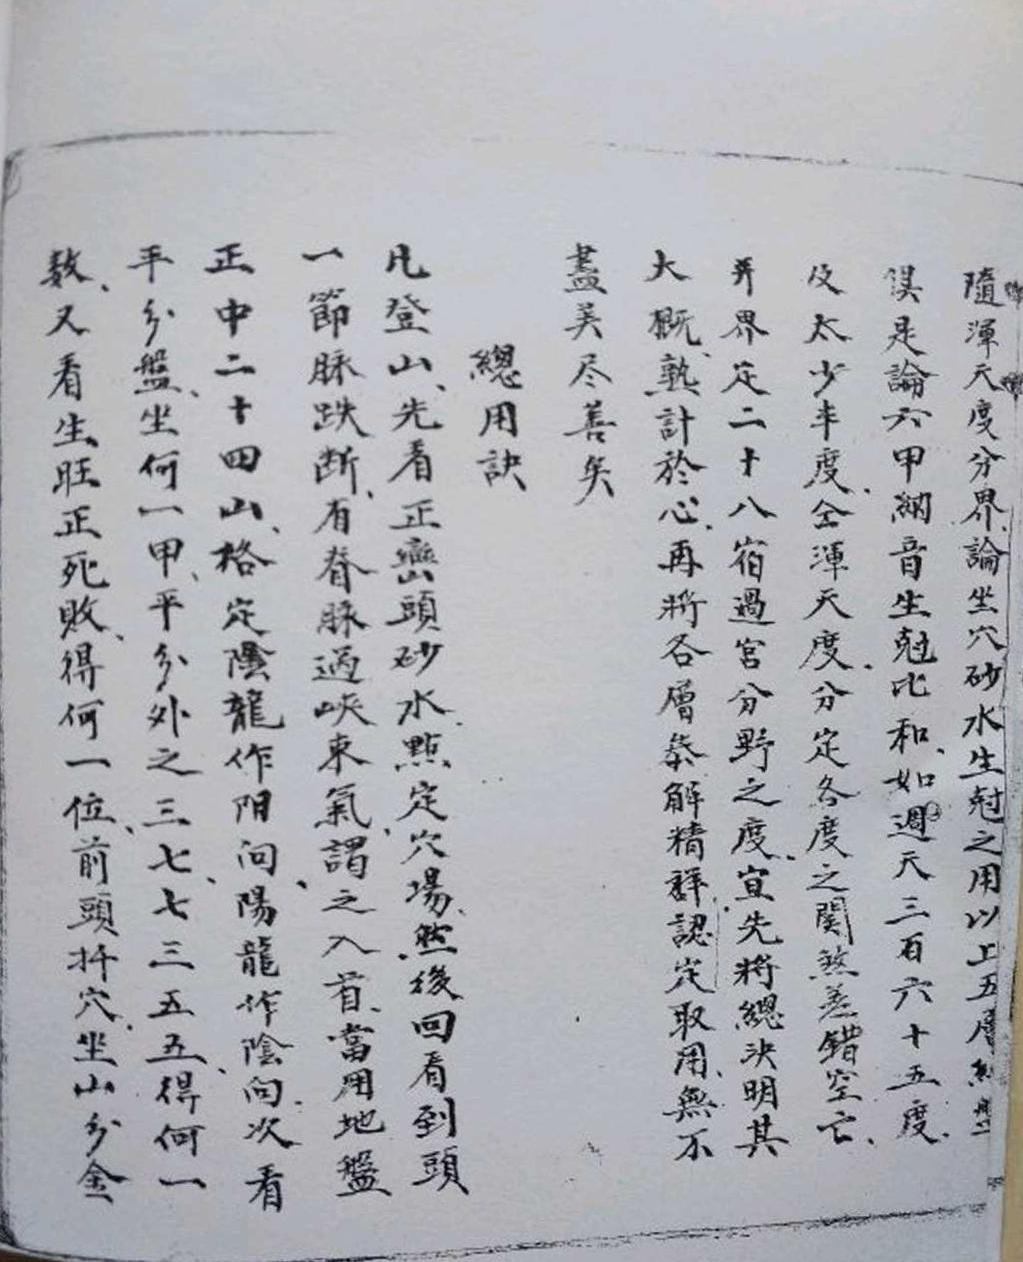 隨渾天度分界、論坐穴砂水生尅之用以上五層
俱是論六甲納音生尅比和、如週天三百六十五度、
及太少半度、全渾天度、分定各度之関煞差錯空亡、
并界定二十八宿過宮分野之度、宜先將總決明其
大概、熟計於心、再將各層叅解精詳、認定取用、無不
盡美尽善矣
總用訣
凡登山、先看正巒頭砂水、點定穴場、然後回看到頭
一節脉跌断、有脊脉過峽束氣、謂之入首、當用地盤
正中二十四山、格定陰龍作阴向、陽龍作陰向、次看
平分盤、坐何一甲、平分外之三七、七三五五、得何一
数、又看生旺正死敗、得何一位、前頭扦穴、坐山分金